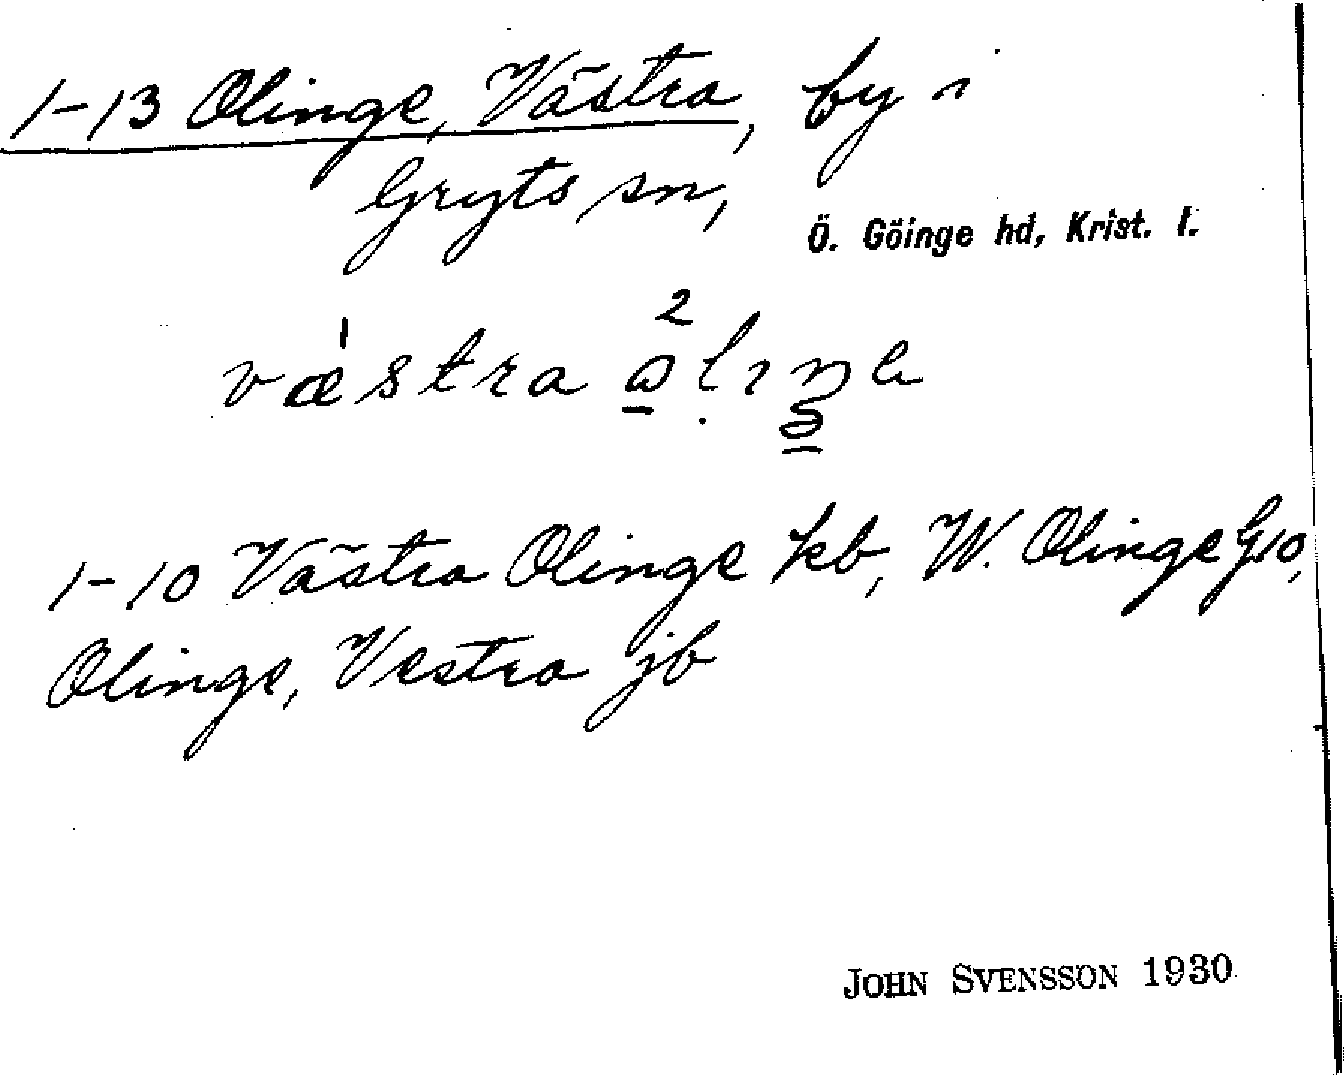 1-13 Olinge, Västra, by i
Gryts sn,
Ö. Göinge hd, Krist. l.
1-10 Västra Olinge kb, W. Olinge G10,
Olinge, Vestra jb
JOHN SVENSSON 1930